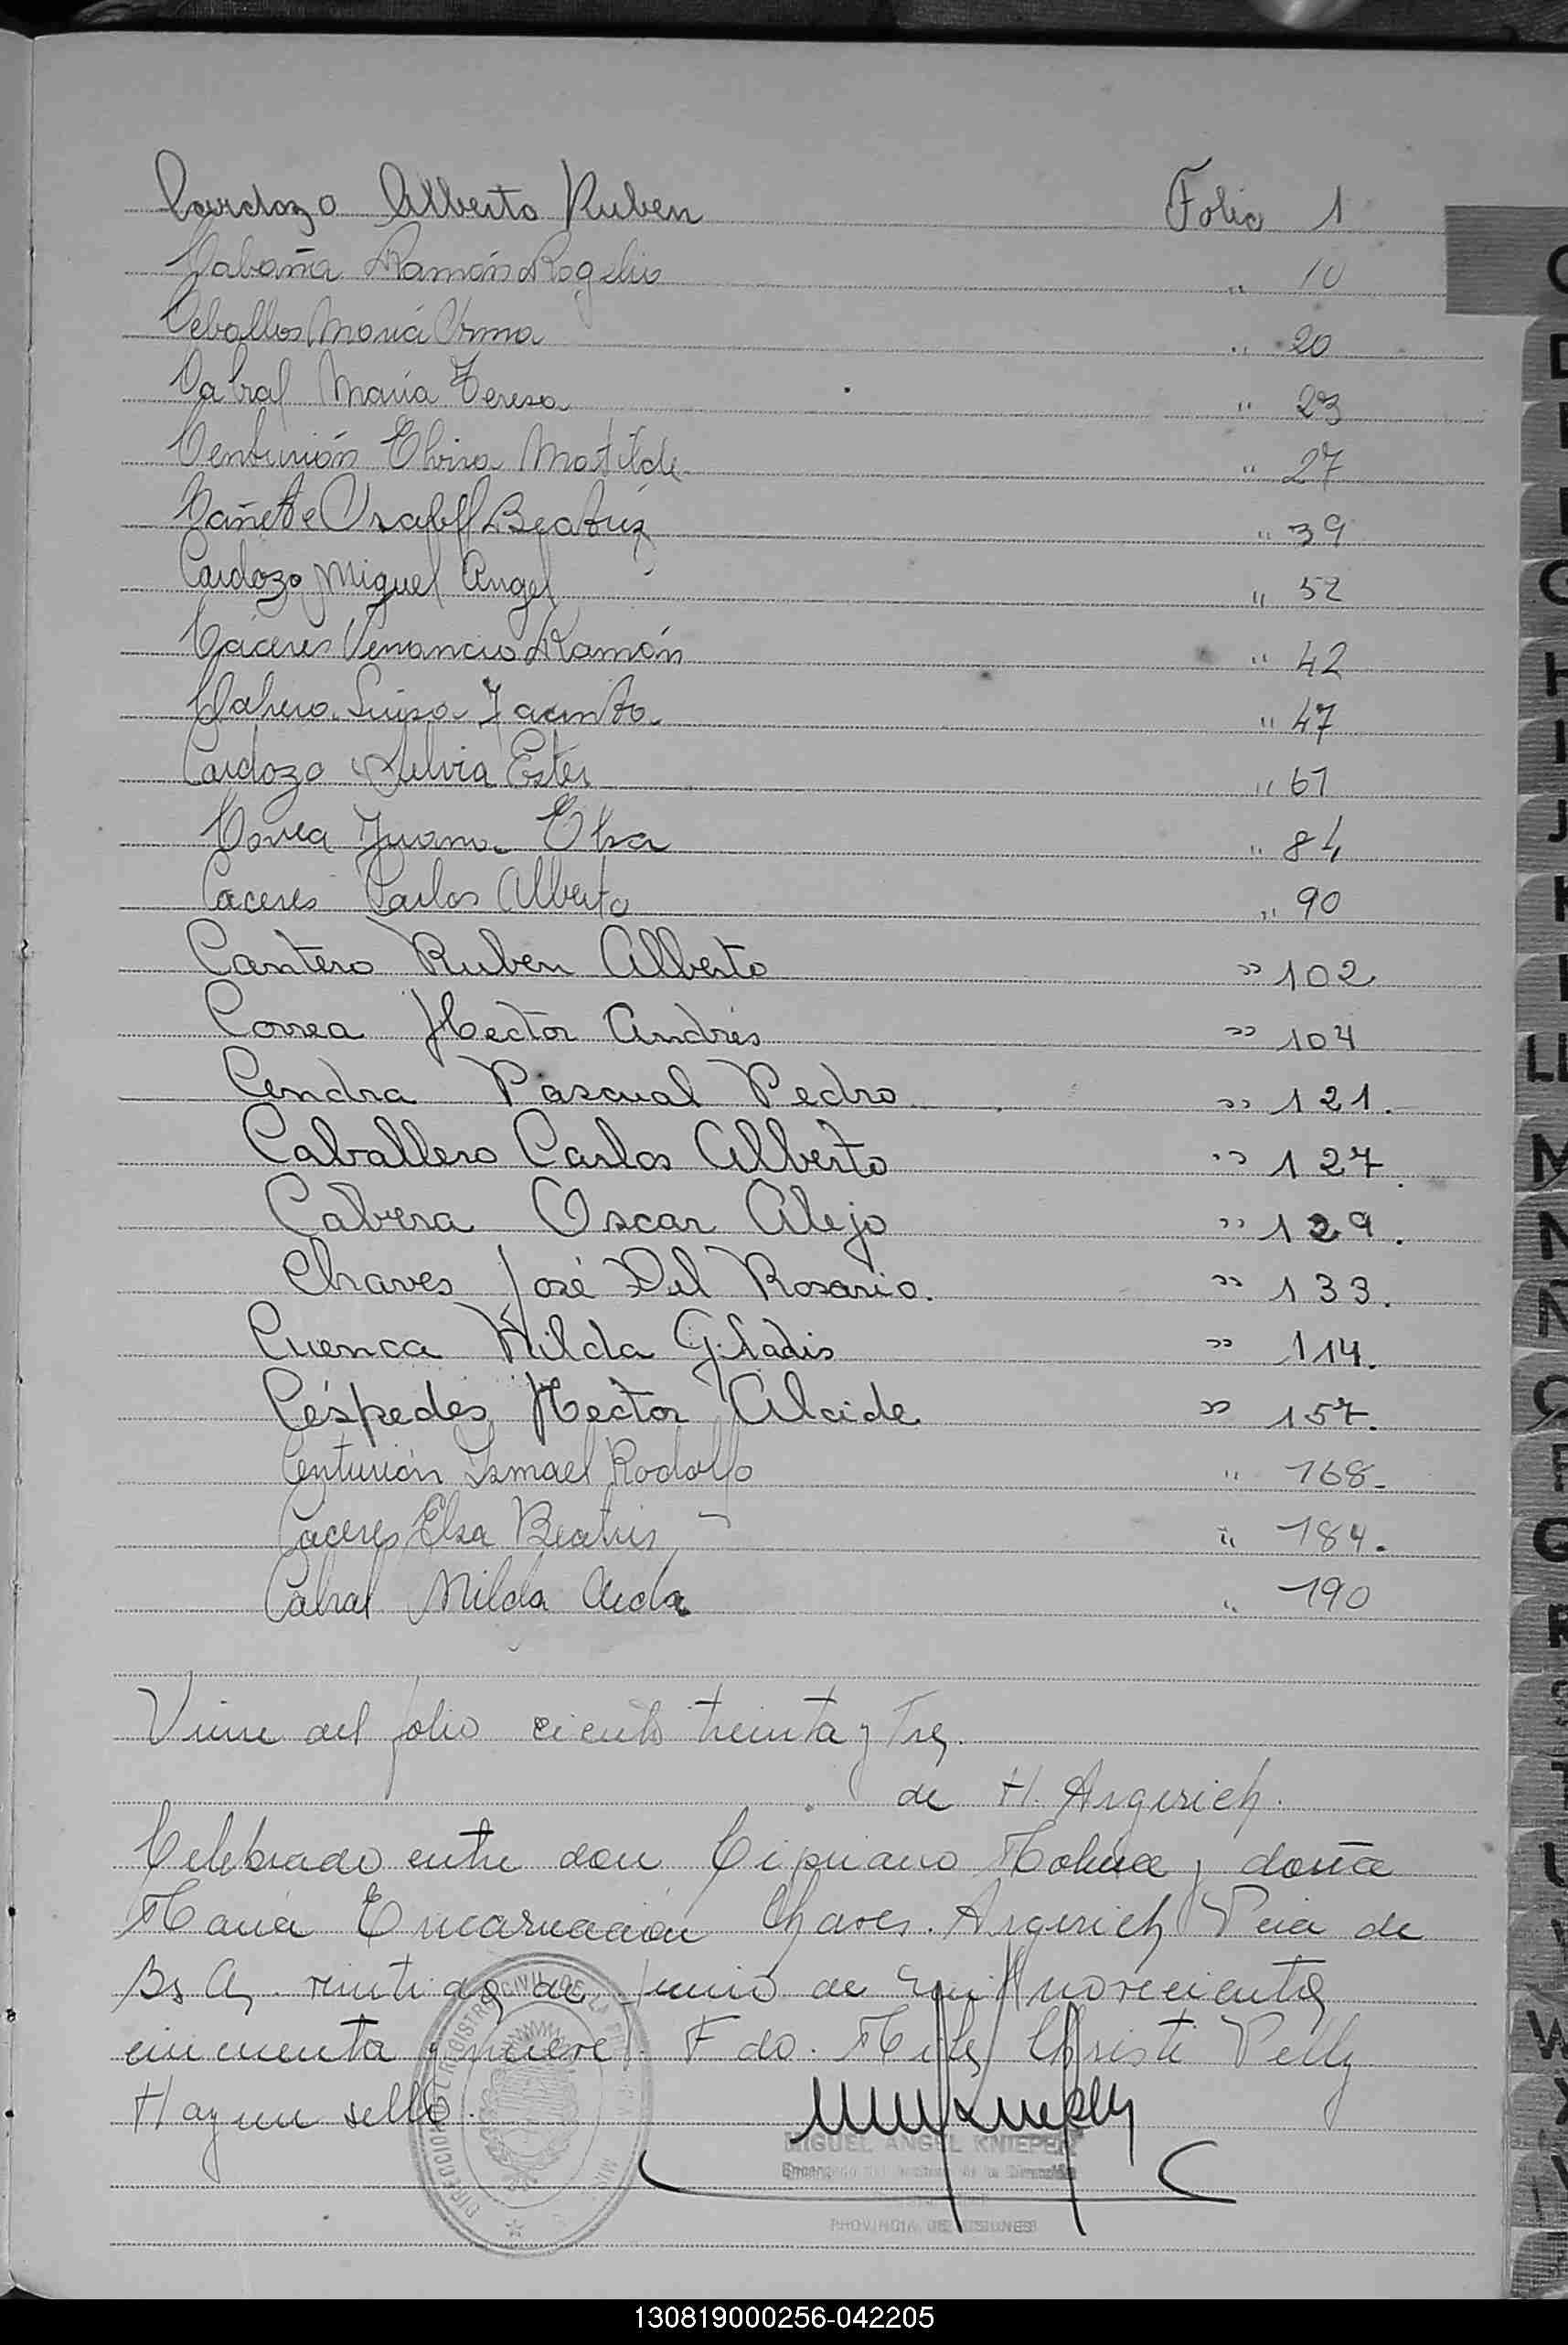 Cardozo Alberto Ruben Folio 1
Cabaña Ramón Rogelio " 10
Ceballos María Irma " 20
Cabral María Teresa " 23
Centurión Elvira Matilde " 27
Cañete Beatriz " 39
Cardozo Miguel Angel " 52
Cáceres Venancio Ramón " 42
Luisa Jacinta " 47
Cardozo Silvia Ester " 61
Correa Juana Elsa " 84
Caceres Carlos Alberto " 90
Cantero Ruben Alberto " 102
Correa Hector Andrés " 104
Cendra Pascual Pedro " 121.
Caballero Carlos Alberto " 127.
Cabrera Oscar Alejo " 129.
Chaves José Del Rosario. " 133.
Cuenca Hilda Gladis " 114.
Céspedes Hector Alcide " 157.
Centurión Ismael Rodolfo " 168.
Caceres Elsa Beatris " 184.
Cabral Nilda Aida " 190
Viene del folio ciento treinta y tres.
de H. Argerich.
Celebrado entre don Cipriano y doña
María Encarnación Chaves. Argerich Pcia de
Bs As. de Junio de mil novecientos
cincuenta y nueve. Fdo. Christi
Hay un sello.
MIGUEL ANGEL KNIEPER
PROVINCIA DE MISIONES
C
D
H
I
J
LL
M
N
Ñ
O
P
Q
R
S
T
U
V
W
130819000256-042205